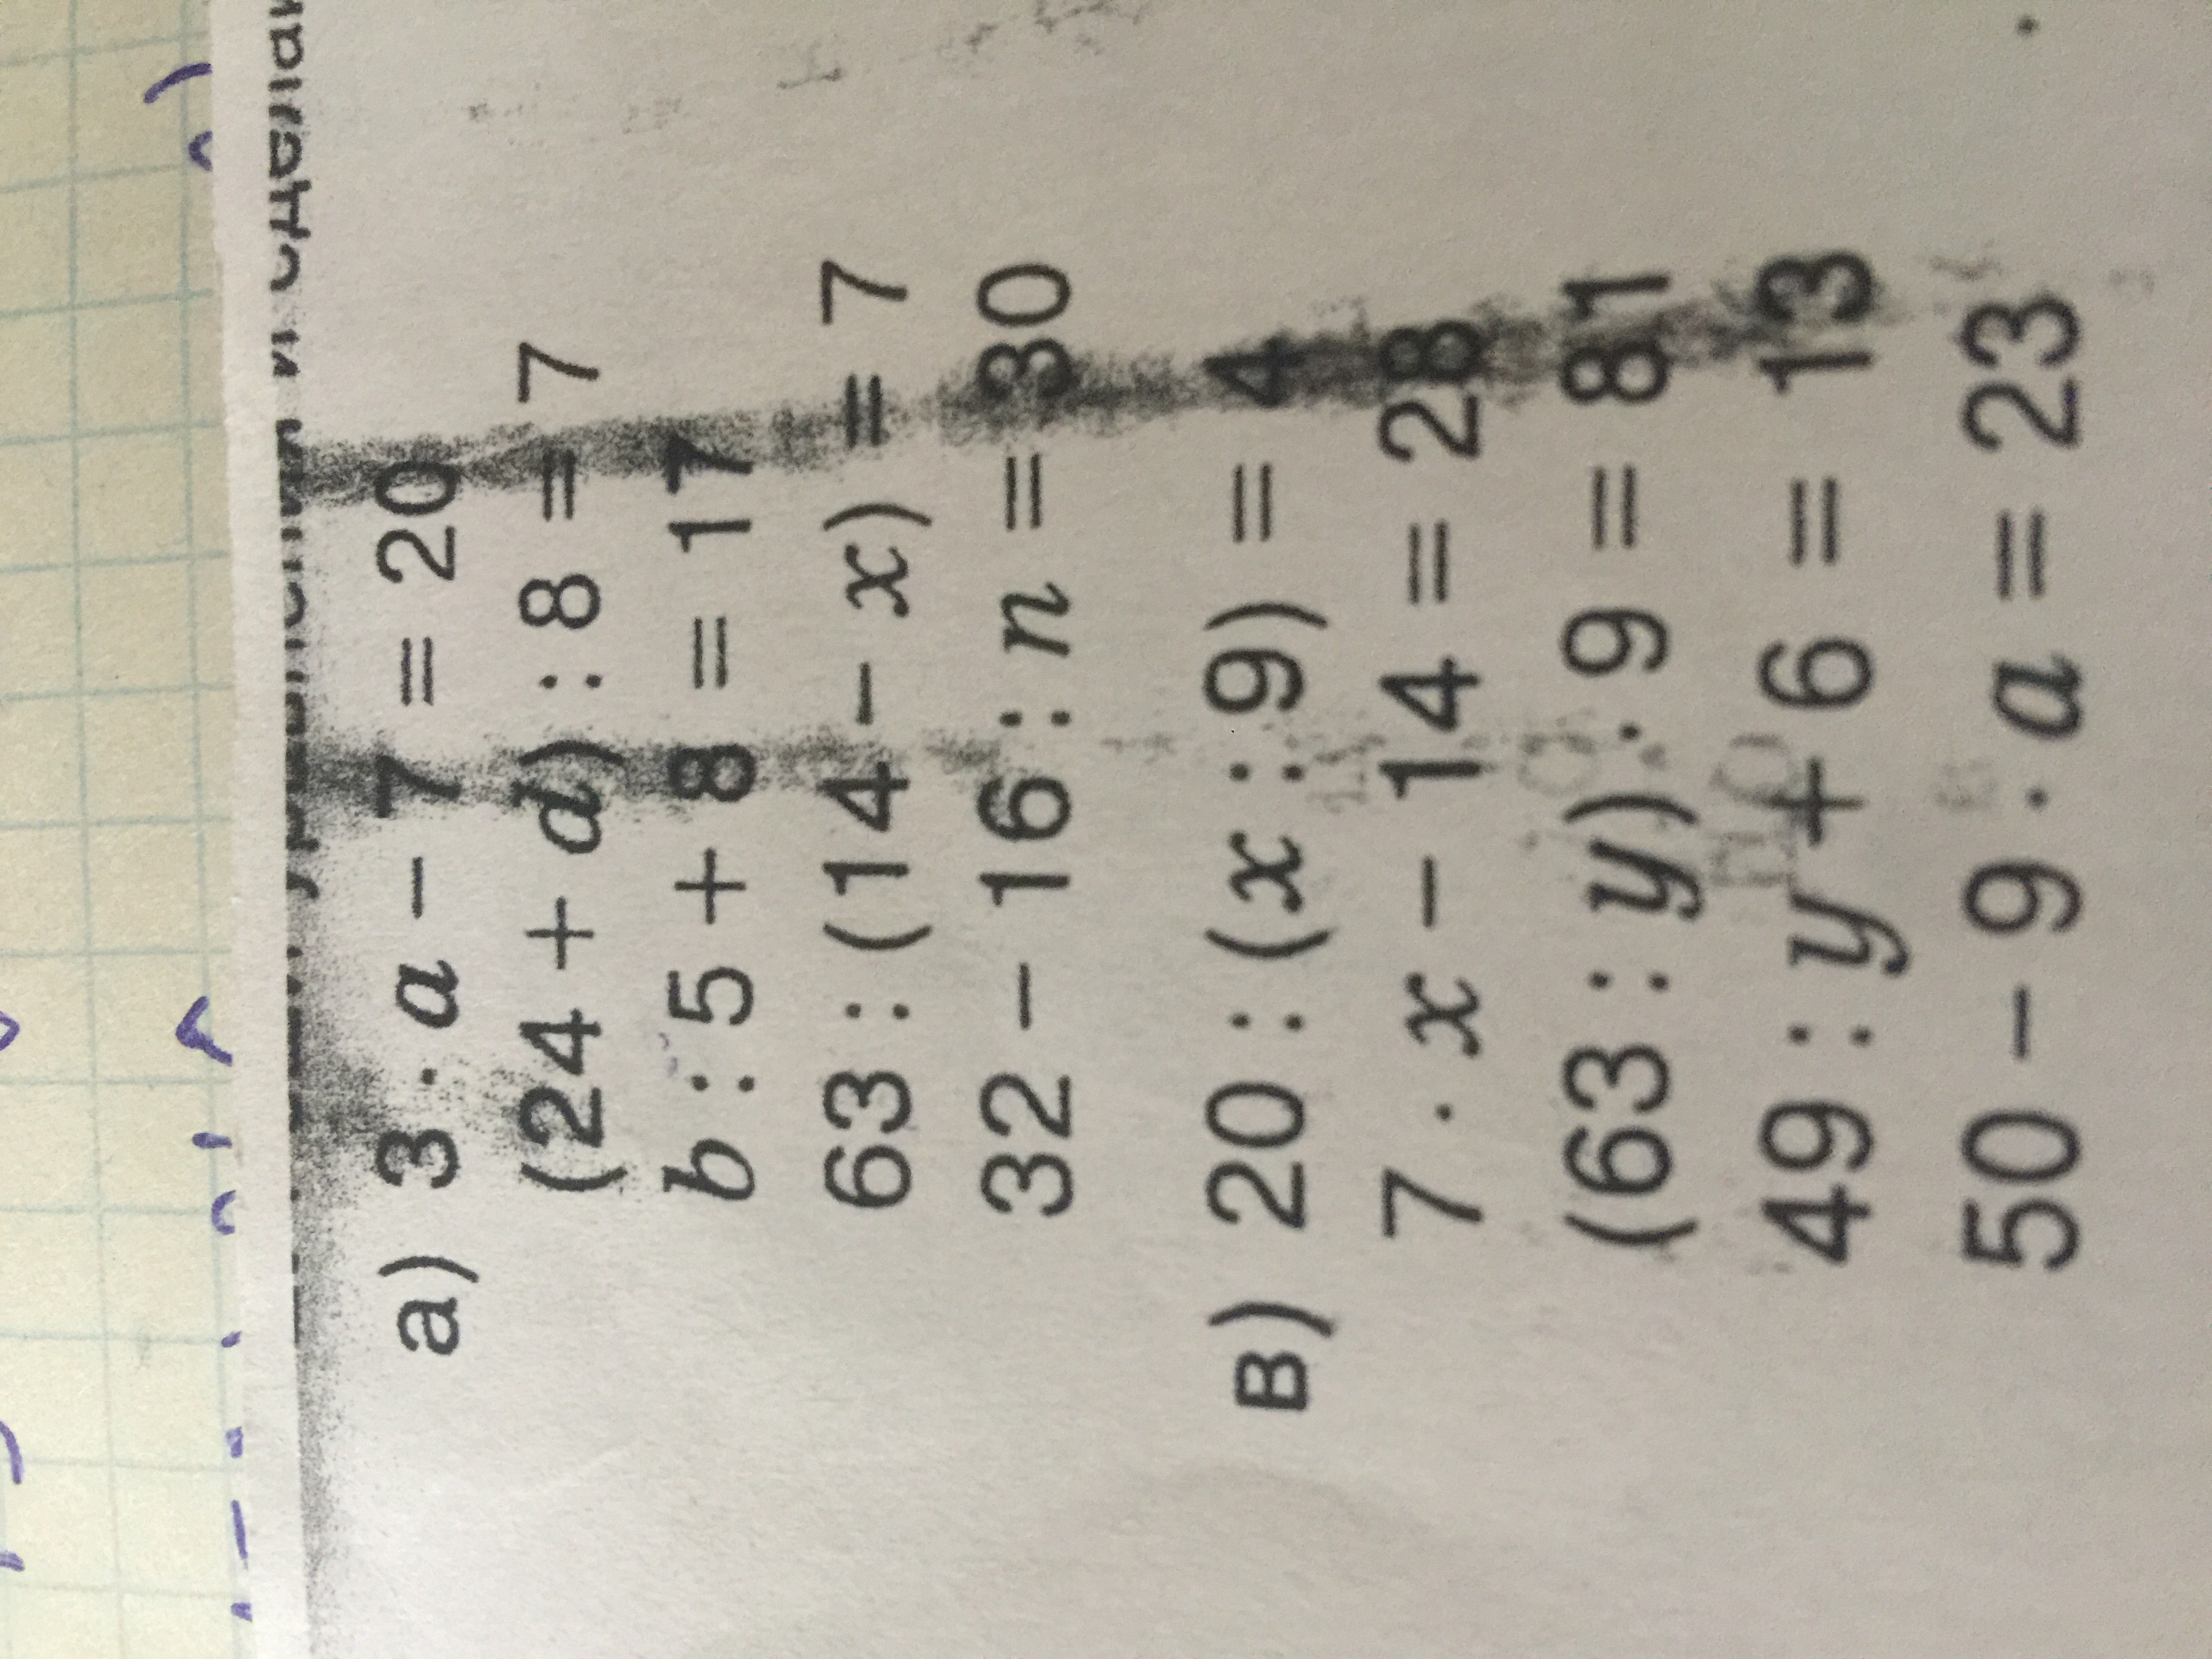 а) 3 · a − 7 = 20
(24 + d) : 8 = 7
b : 5 + 8 = 17
63 : (14 − x) = 7
32 − 16 : n = 30
в) 20 : (x : 9) = 4
7 · x − 14 = 28
(63 : y) · 9 = 81
49 : y + 6 = 13
50 − 9 · a = 23